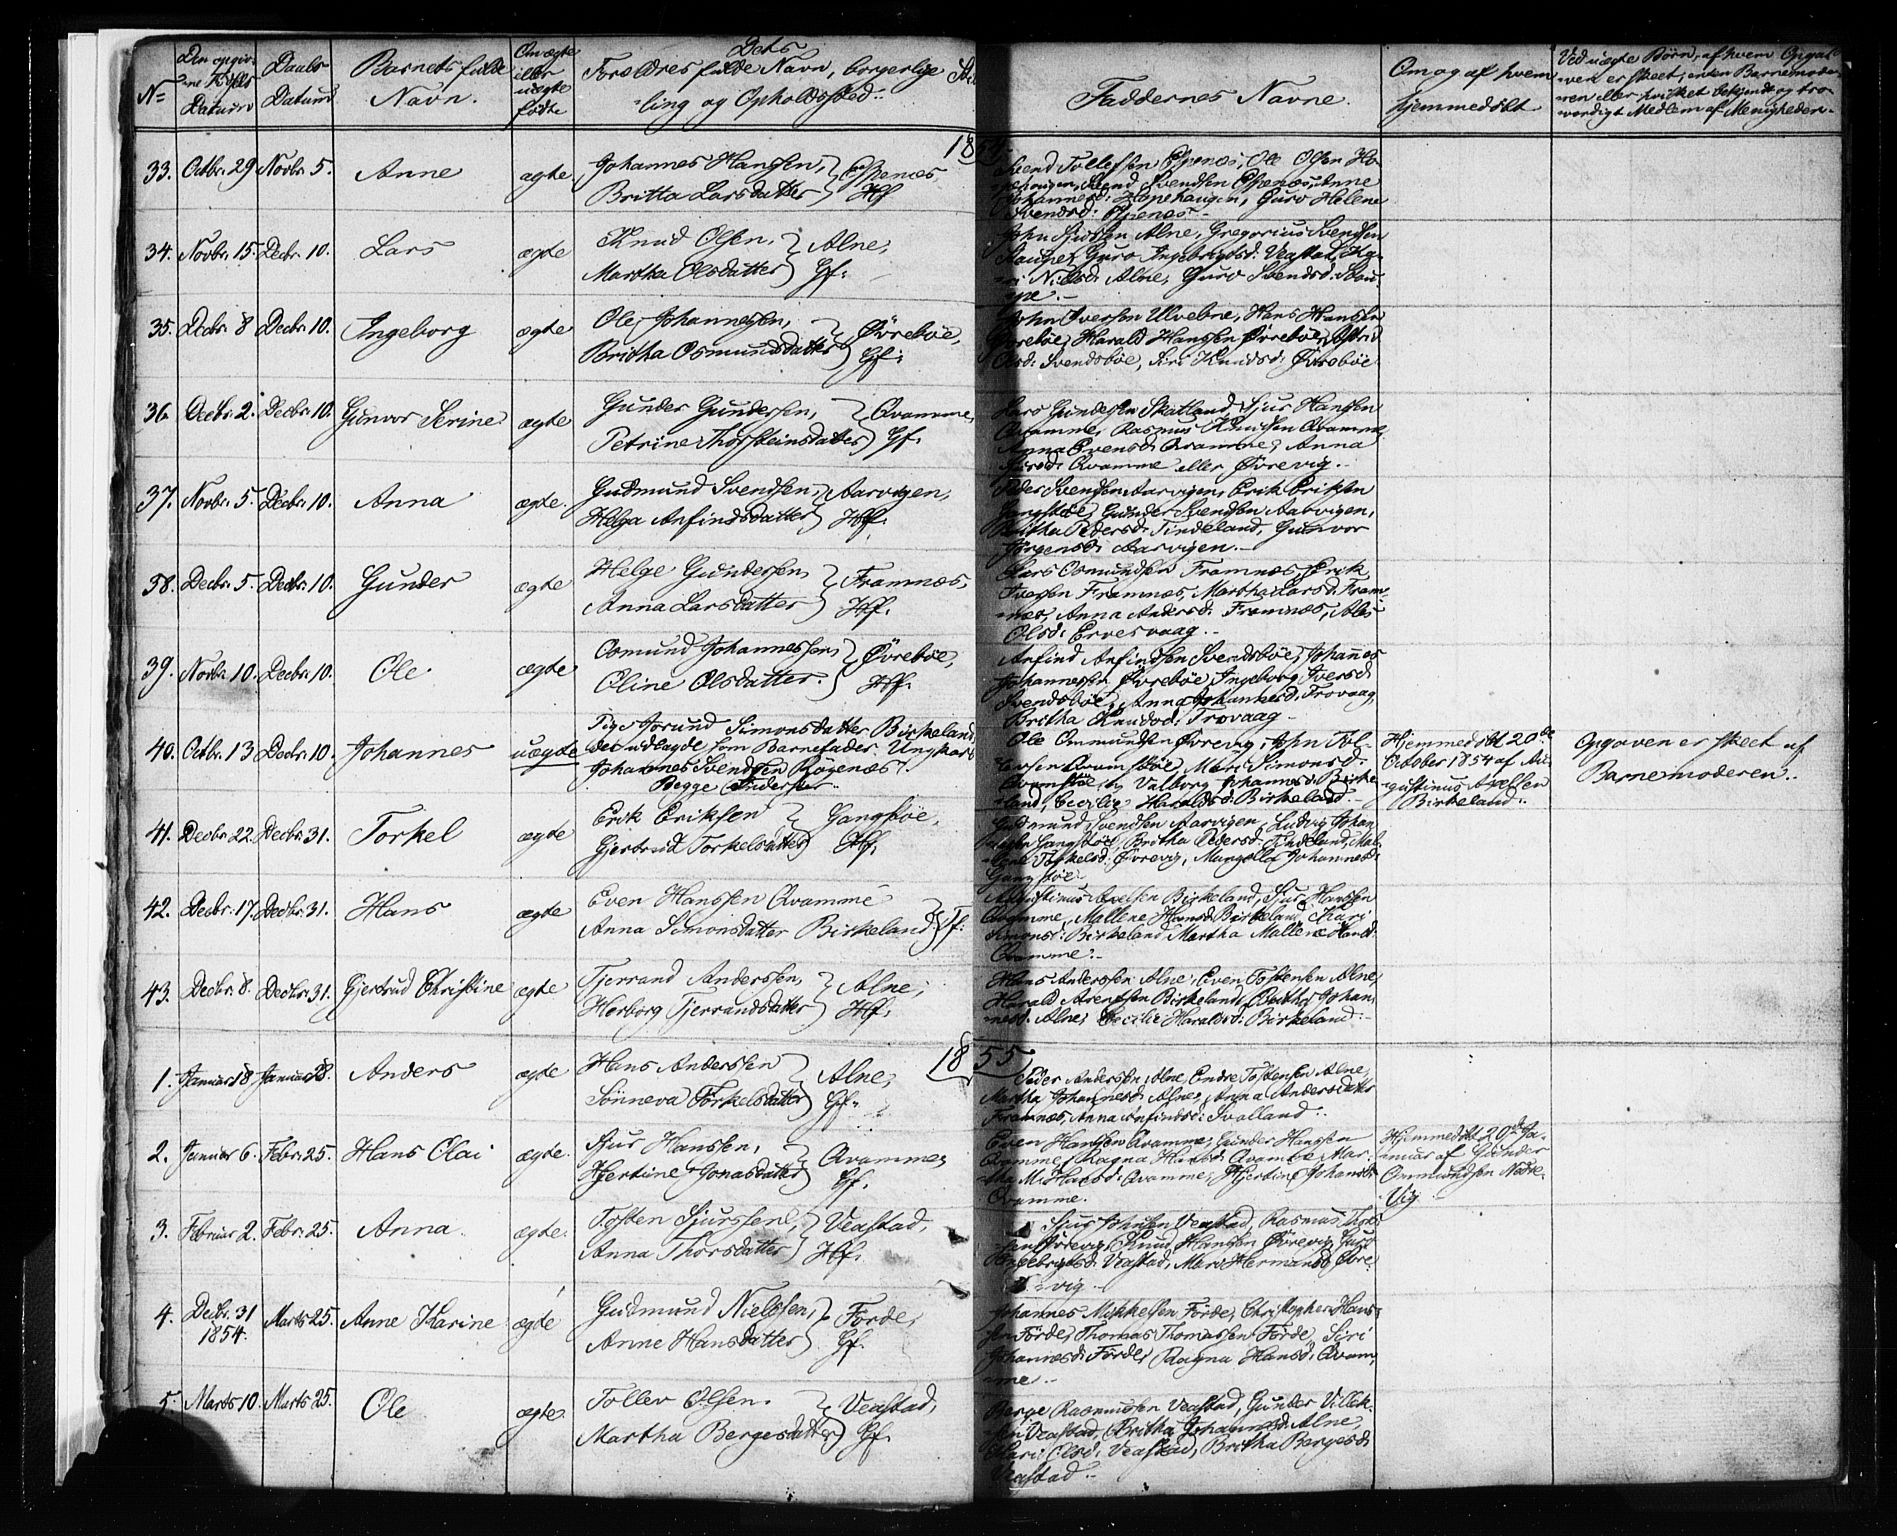 Nº
Den opgiv-
ne Føds.
Datum
Daabs
Datum
Barnets fulde
Navn.
Om ægte
eller
uægte
fødte
Dets
Forældres fulde Navn, borgerlige Stil-
ling og Opholdssted.
Faddernes Navne.
Om og af hvem
hjemmedøbt
Ved uægte Børn, af hvem Opgi-
ven er skeet, enten Barnemode-
ren eller hvilket bekjendt og tro-
værdigt Medlem af Menigheden.
33. Octbr. 29 Novbr. 5. Anne ægte
Johannes Hanssen, Espenæs
Britta Larsdatter Hf
Svend Tollefsen Espenæs, Ole Olsen Ho-
pehaugen, Svendsen Espenæs, Anne
Johannesd: Hopehaugen, Guro Helene
Svendsd: Espenæs.
34. Novbr. 15. Decbr. 10. Lars ægte
Knud Olsen, Alne,
Martha Olsdatter Gf.
John Alne, Gregorius Svendsen
Guro Ingebrigtsd: Veastad,
Nielsd: Alne, Guro Svendsd:
35. Decbr. 8 Decbr. 10. Ingeborg ægte
Ole Johannessen, Øvrebøe,
Britha Osmundsdatter Gf.
John Iversen Ulvebne, Hans Hansen
Øvrebøe, Harald Hanssen Øvrebøe, Astrid
Olsd: Svendsbøe, Siri Knudsd: Øvrebøe
36. Decbr. 2. Decbr. 10. Gunvor Serine ægte
Gunder Gundersen, Qvamme,
Petrine Thorsteinsdatter Gf.
Lars Gundersen Skatland, Sjur Hanssen
Qvamme, Rasmus Knudsen Qvamme,
Anna Evensd: Qvamme, Anna
Qvamme eller Øvrevig.
37. Novbr. 5. Decbr. 10. Anna ægte.
Gudmund Svendsen, Aarvigen,
Helga Anfindsdatter Hf.
Peder Svendsen Aarvigen, Erik Eriksen
Gangstøe, Gunder Svendsen Aarvigen,
Britha Pedersd: Tindeland, Gunvor
Jørgensd: Aarvigen.
38. Decbr. 5. Decbr. 10. Gunder ægte
Helge Gundersen, Framnæs,
Anna Larsdatter Hf.
Lars Osmundsen Framnæs, Erik
Framnæs, Martha Larsd: Fram-
næs, Anna Andersd: Framnæs,
Olsd:
39. Novbr. 10. Decbr. 10. Ole ægte
Osmund Johannessen, Øvrebøe,
Oline Olsdatter. Hf.
Anfind Anfindsen Svendsbøe, Johannes
Johannessen Øvrebøe, Ingeborg Iversd:
Svendsbøe, Anna Johannesd: Trovaag,
Britha Knudsd: Trovaag
40. Octbr. 13 Decbr. 10. Johannes uægte
Pige Jorund Simonsdatter Birkeland,
det udlagde som Barnefader Ungkarl
Johannes Svendsen Røgenæs.
Begge
Ole Ommundsen Øvrevig, John Tol-
Simonsd:
Valborg Johannesd: Birke-
land, Cecilie Haraldsd: Birkeland.
Hjemmedøbt 20de
October 1854 af Au-
gustinus Axelsen
Birkeland.
Opgaven er skeet af
Barnemoderen.
41. Decbr. 22. Decbr. 31. Torkel ægte
Erik Eriksen Gangstøe,
Gjertrud Torkelsdatter Hf.
Gudmund Svendsen Aarvigen, Ludvig Johan-
nessen Gangstøe, Britha Pedersd: Tindeland, Mal-
ene Torkelsd: Øvrevig, Johannesd:
Gangstøe
42. Decbr. 17. Decbr. 31. Hans ægte
Even Hanssen Qvamme
Anna Simonsdatter Birkeland Gf.
Augustinus Axelsen Birkeland, Sjur Hanssen
Qvamme, Mallene Hansd: Birkeland, Kari
Simonsd: Birkeland, Martha Mallene Hansd:
Qvamme.
43. Decbr. 8. Decbr. 31. Gjertrud Christine ægte
Tjerrand Anderssen, Alne,
Herborg Tjerrandsdatter Hf.
Hans Anderssen Alne, Even Tostensen Alne,
Harald Arentsen Birkeland, Britha Johan-
nesd: Alne, Cecilie Haraldsd: Birkeland.
1855
1. Januar 18. Januar 28. Anders ægte
Hans Anderssen Alne,
Sønneva Torkelsdatter Gf.
Peder Anderssen Alne, Endre Tostensen Alne,
Martha Johannesd: Alne, Anna Andersdatter
Framnæs, Anna Anfindsd: Tvalland.
2. Januar 6. Febr. 25. Hans Olai ægte.
Sjur Hanssen, Qvamme,
Hjertine Jonasdatter Gf.
Even Hanssen Qvamme, Gunder Hanssen
Qvamme, Ragna Hansd: Qvamme, Mar-
tha M. Hansd: Qvamme, Hjertine Johansd:
Qvamme.
Hjemmedøbt 20de Ja-
nuar af Gunder
Ommundsen Nedre-
Vig
3. Februar 2. Febr. 25. Anna ægte.
Tosten Sjurssen, Veastad,
Anna Thorsdatter Hf.
Sjur Johnsen Veastad, Rasmus Thor-
sen Øvrevig, Knud Hanssen Øvrevig, Guro
Ingebrigtsd: Veastad, Mari Hermansd: Øvre-
vig.
4. Decbr. 31 1854. Marts 25. Anne Karine ægte
Gudmund Nielssen, Førde,
Anne Hansdatter Gf.
Johannes Mikkelsen Førde, Christopher Hans-
sen Førde, Thomas Thomassen Førde, Siri
Johannesd: Førde, Ragna Hansd: Qvam-
me.
5. Marts 10. Marts 25. Ole ægte.
Tollev Olsen. Veastad,
Martha Bergesdatter Gf.
Berge Rasmussen Veastad, Gunder Villek-
sen Veastad, Britha Johannesd: Alne,
Kari Olsd: Veastad, Britha Bergesd:
Veastad.